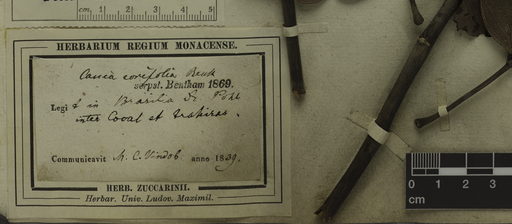 cm, 1 2 3 4 5
HERBARIUM REGIUM MONACENSE.
Cassia corifolia Benth
scrpst. Bentham 1869.
Legi t in Brasilia D. Pohl
inter Coval et Trahiras.
Communicavit M. C. Vindob anno 1839.
HERB. ZUCCARINII.
Herbar. Univ. Ludov. Maximil.
0 1 2
cm